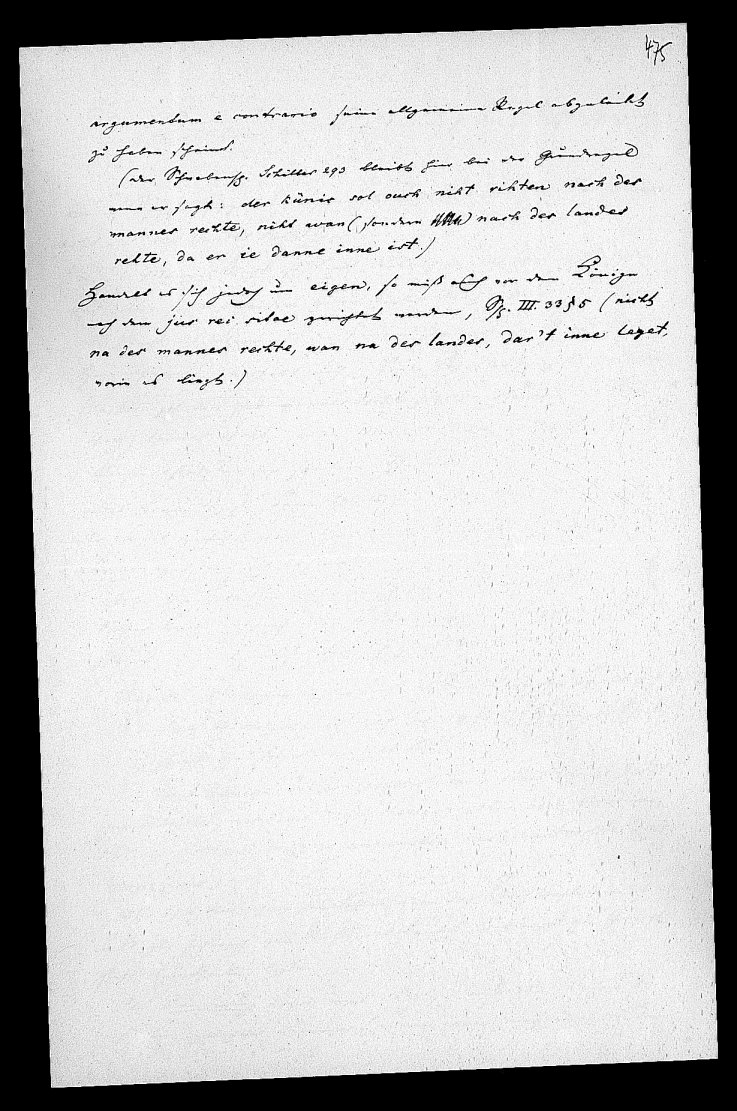 475
argumentum e contrario seine allgemeine Regel abgeleitet
zu haben scheint.
(der Schwabensp. Schilter 293 bleibt hier bei der Grundregel
wenn er sagt: der künic sol ouch niht rihten nach des
mannes rechte, niht wan (sondern nach des landes
rehte, da er ie danne inne ist.)
Handelt es sich jedoch um eigen, so muß auch vor dem Könige
nach dem jus rei sitae gerichtet werden, Sp. III. 33 § 5 (nicht
na des mannes rechte, wan na des landes, dar't inne leget,
worin es liegt.)